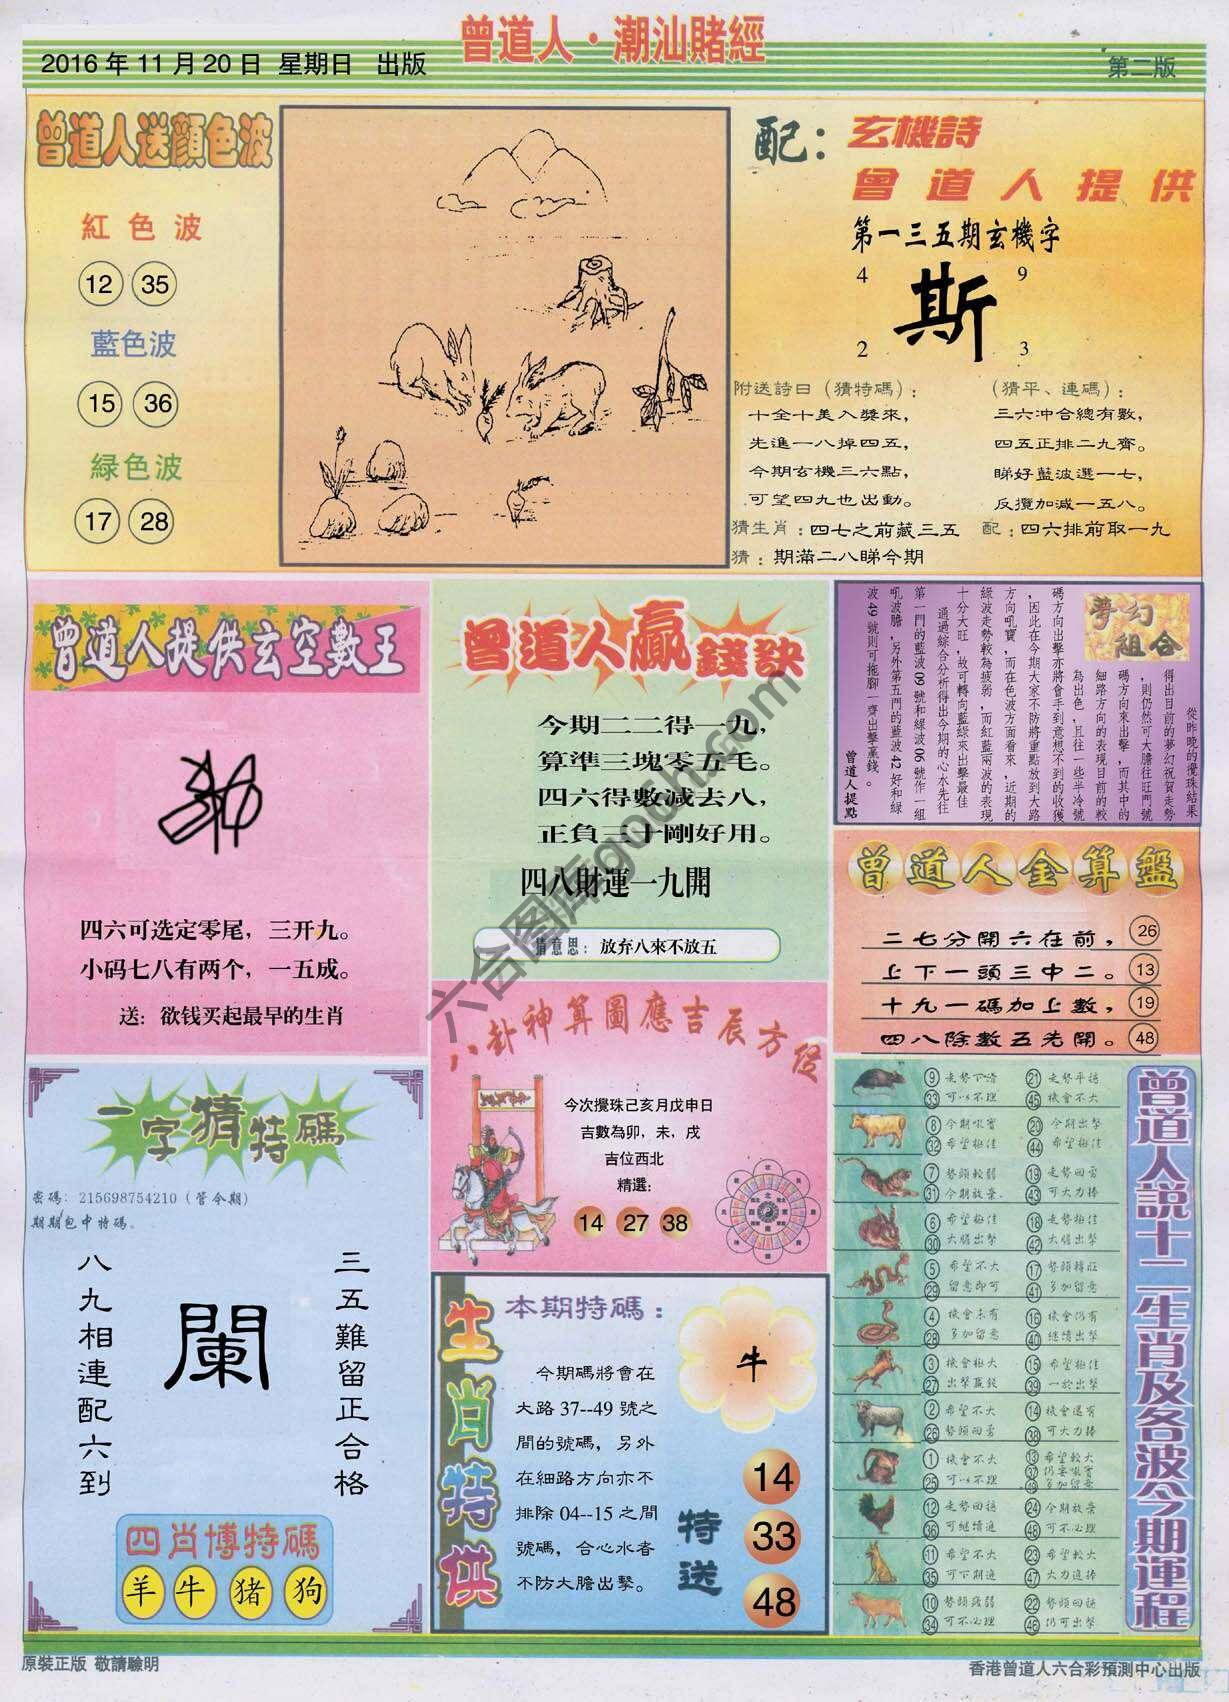 曾道人·潮汕賭經
2016年11月20日 星期日 出版
第二版
曾道人送顏色波
紅色波
12 35
藍色波
15 36
綠色波
17 28
配：玄機詩
曾道人提供
第一三五期玄機字
4 9
斯
2 3
附送詩曰（猜特碼）：
十全十美入獎來，
先進一八掉四五，
今期玄機三六點，
可望四九也出動。
（猜平、連碼）：
三六冲合總有數，
四五正排二九齊。
睇好藍波選一七，
反攬加減一五八。
猜生肖：四七之前藏三五
配：四六排前取一九
猜：期滿二八睇今期
曾道人提供玄空數王
四六可选定零尾，三开九。
小码七八有两个，一五成。
送：欲钱买起最早的生肖
曾道人贏錢訣
今期二二得一九，
算準三塊零五毛。
四六得數減去八，
正負三十剛好用。
四八財運一九開
猜意思：放弃八來不放五
夢幻組合
從昨晚的攪珠結果
得出目前的夢幻祝賀走勢
，則仍然可大膽往旺門號
碼方向來出擊，而其中的
細路方向的表現目前的較
為出色，且往一些半冷號
碼方向出擊亦將會手到意想不到的收獲
，因此在今期大家不防將重點放到大路
方向吼寶，而在色波方面看來，近期的
綠波走勢較為疲弱，而紅藍兩波的表現
十分大旺，故可轉向藍綠來出擊最佳
通過綜合分析得出今期的心水先往
第一門的藍波09號和綠波06號作一組
吼波膽，另外第五門的藍波42好和綠
波49號則可拖腳一齊出擊贏錢。
曾道人提點
曾道人金算盤
二七分開六在前， 26
上下一頭三中二。 13
十九一碼加上數， 19
四八除數五先開。 48
八卦神算圖應吉辰方位
今次攪珠己亥月戊申日
吉數為卯，未，戌
吉位西北
精選：
14 27 38
一字猜特碼
密碼：215698754210（管今期）
期期包中特碼。
三五難留正合格
闌
八九相連配六到
四肖博特碼
羊 牛 猪 狗
生肖特供
本期特碼：
今期碼將會在
大路37--49號之
間的號碼，另外
在細路方向亦不
排除04--15之間
號碼，合心水者
不防大膽出擊。
牛
特送
14
33
48
曾道人説十二生肖及各波今期運程
⑨ 走勢下滑 ㉑ 走勢平穩
㉝ 可以不理 ㊺ 機會不大
⑧ 今期吼寶 ⑳ 今期出擊
㉜ 希望極佳 ㊹ 希望極佳
⑦ 勢頭較弱 ⑲ 走勢回勇
㉛ 今期放棄 ㊸ 可大力捧
⑥ 希望極佳 ⑱ 走勢極佳
㉚ 大膽出擊 ㊷ 大膽出擊
⑤ 希望不大 ⑰ 勢頭轉旺
㉙ 留意即可 ㊶ 多加留意
④ 機會未有 ⑯ 機會仍有
㉘ 多加留意 ㊵ 繼續出擊
③ 機會極大 ⑮ 希望極佳
㉗ 出擊贏錢 ㊴ 一於出擊
② 希望不大 ⑭ 機會還有
㉖ 勢頭回勇 ㊳ 可大力捧
① 機會不大 ⑬ 希望較大
㉕ 可以不理 ㊲ 仍要吼寶
㊾ 多加留意
⑫ 走勢回穩 ㉔ 今期放棄
㊱ 可繼續追 ㊽ 可不必理
⑪ 希望不大 ㉓ 希望較大
㉟ 可下期追 ㊼ 大力追捧
⑩ 勢頭疲弱 ㉒ 勢頭回穩
㉞ 可不必理 ㊻ 仍可出擊
原裝正版 敬請驗明
香港曾道人六合彩預測中心出版
六合图库gotwht.com